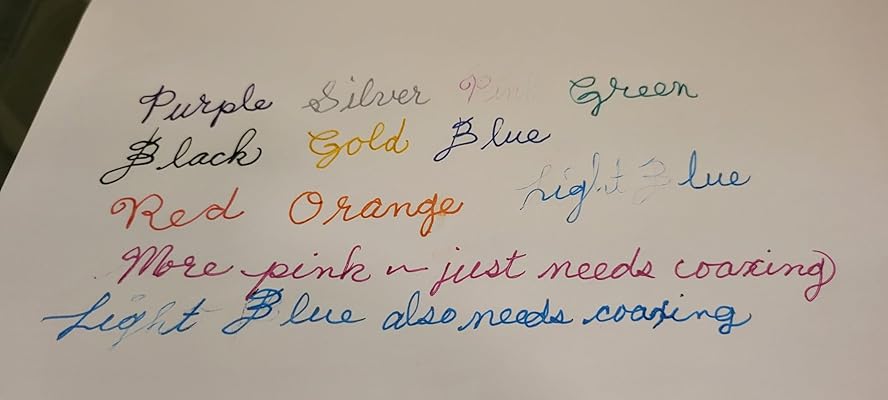 Purple Silver Pink Green
Black Gold Blue
Red Orange Light Blue
More pink ~ just needs coaxing
Light Blue also needs coaxing